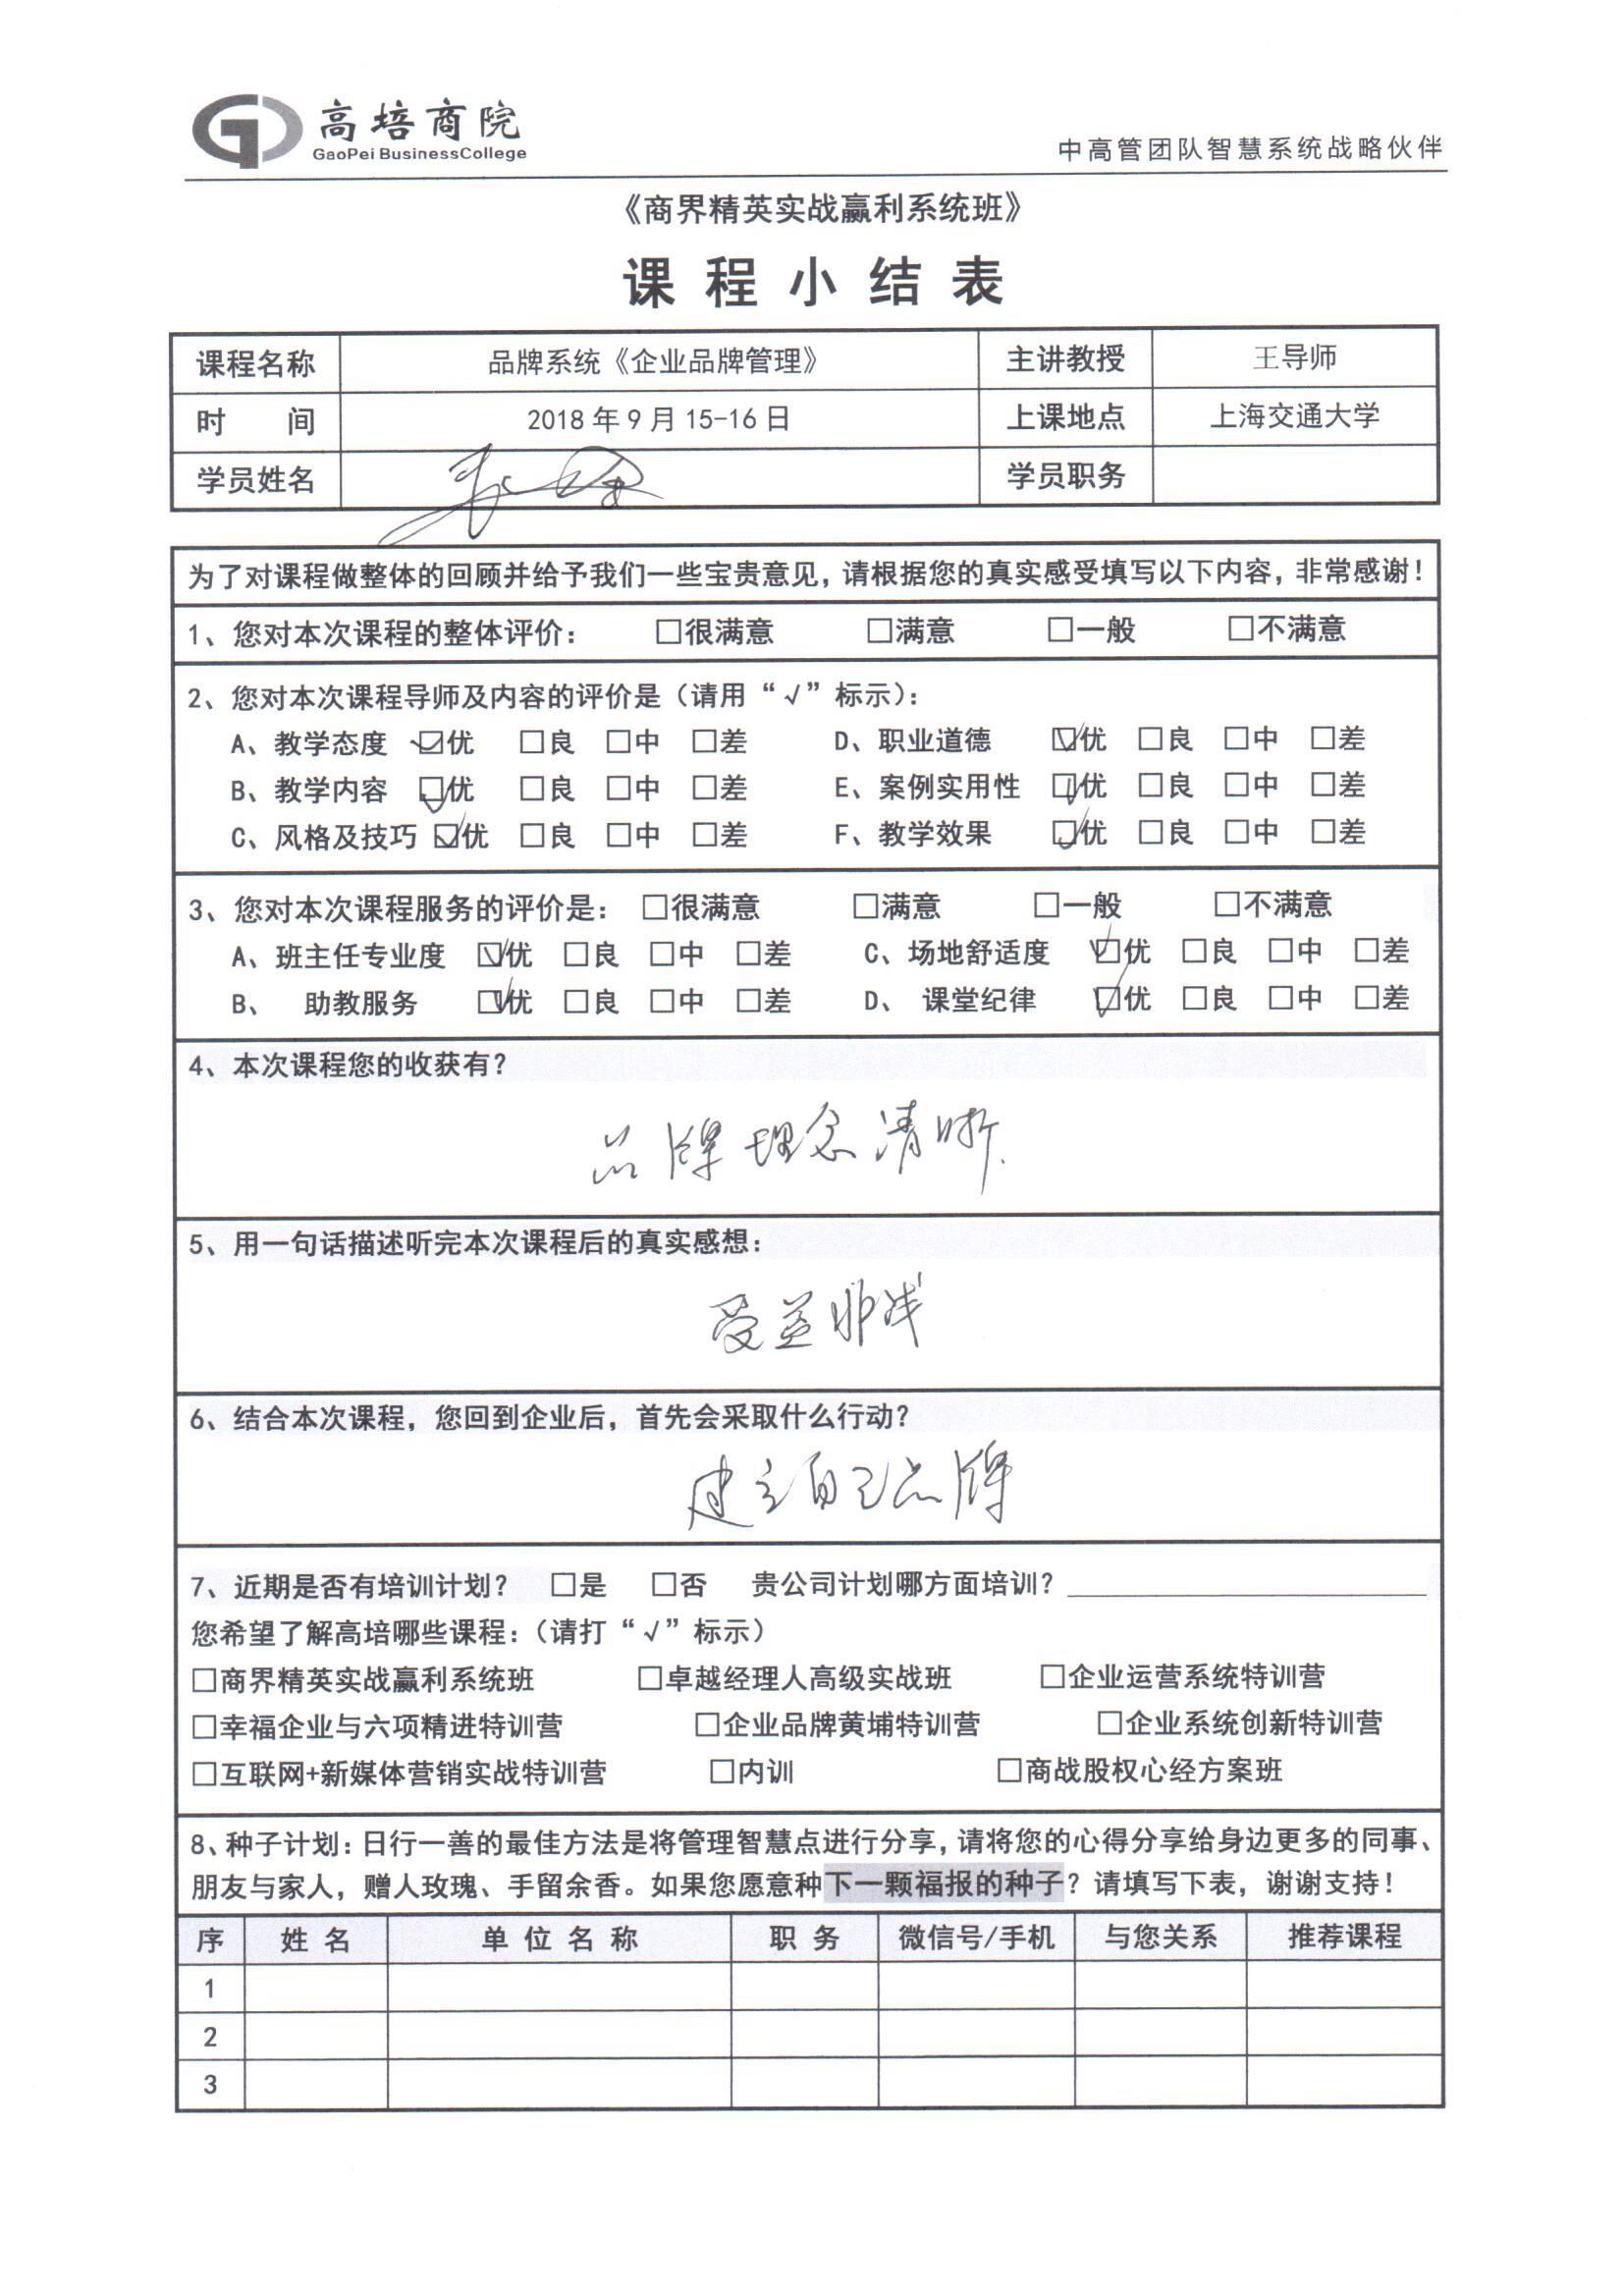 高培商院
GaoPei BusinessCollege
中高管团队智慧系统战略伙伴
《商界精英实战赢利系统班》
课程小结表
课程名称 品牌系统《企业品牌管理》 主讲教授 王导师
时 间 2018年9月15-16日 上课地点 上海交通大学
学员姓名 学员职务
为了对课程做整体的回顾并给予我们一些宝贵意见，请根据您的真实感受填写以下内容，非常感谢！
1、您对本次课程的整体评价： □很满意 □满意 □一般 □不满意
2、您对本次课程导师及内容的评价是（请用“√”标示）：
A、教学态度 ☑优 □良 □中 □差 D、职业道德 ☑优 □良 □中 □差
B、教学内容 ☑优 □良 □中 □差 E、案例实用性 ☑优 □良 □中 □差
C、风格及技巧 ☑优 □良 □中 □差 F、教学效果 ☑优 □良 □中 □差
3、您对本次课程服务的评价是： □很满意 □满意 □一般 □不满意
A、班主任专业度 ☑优 □良 □中 □差 C、场地舒适度 ☑优 □良 □中 □差
B、 助教服务 ☑优 □良 □中 □差 D、 课堂纪律 ☑优 □良 □中 □差
4、本次课程您的收获有？
品牌理念清晰.
5、用一句话描述听完本次课程后的真实感想：
受益非浅
6、结合本次课程，您回到企业后，首先会采取什么行动？
建立自己品牌
7、近期是否有培训计划？ □是 □否 贵公司计划哪方面培训？
您希望了解高培哪些课程：（请打“√”标示）
□商界精英实战赢利系统班 □卓越经理人高级实战班 □企业运营系统特训营
□幸福企业与六项精进特训营 □企业品牌黄埔特训营 □企业系统创新特训营
□互联网+新媒体营销实战特训营 □内训 □商战股权心经方案班
8、种子计划：日行一善的最佳方法是将管理智慧点进行分享，请将您的心得分享给身边更多的同事、
朋友与家人，赠人玫瑰、手留余香。如果您愿意种下一颗福报的种子？请填写下表，谢谢支持！
序 姓名 单位名称 职务 微信号/手机 与您关系 推荐课程
1
2
3